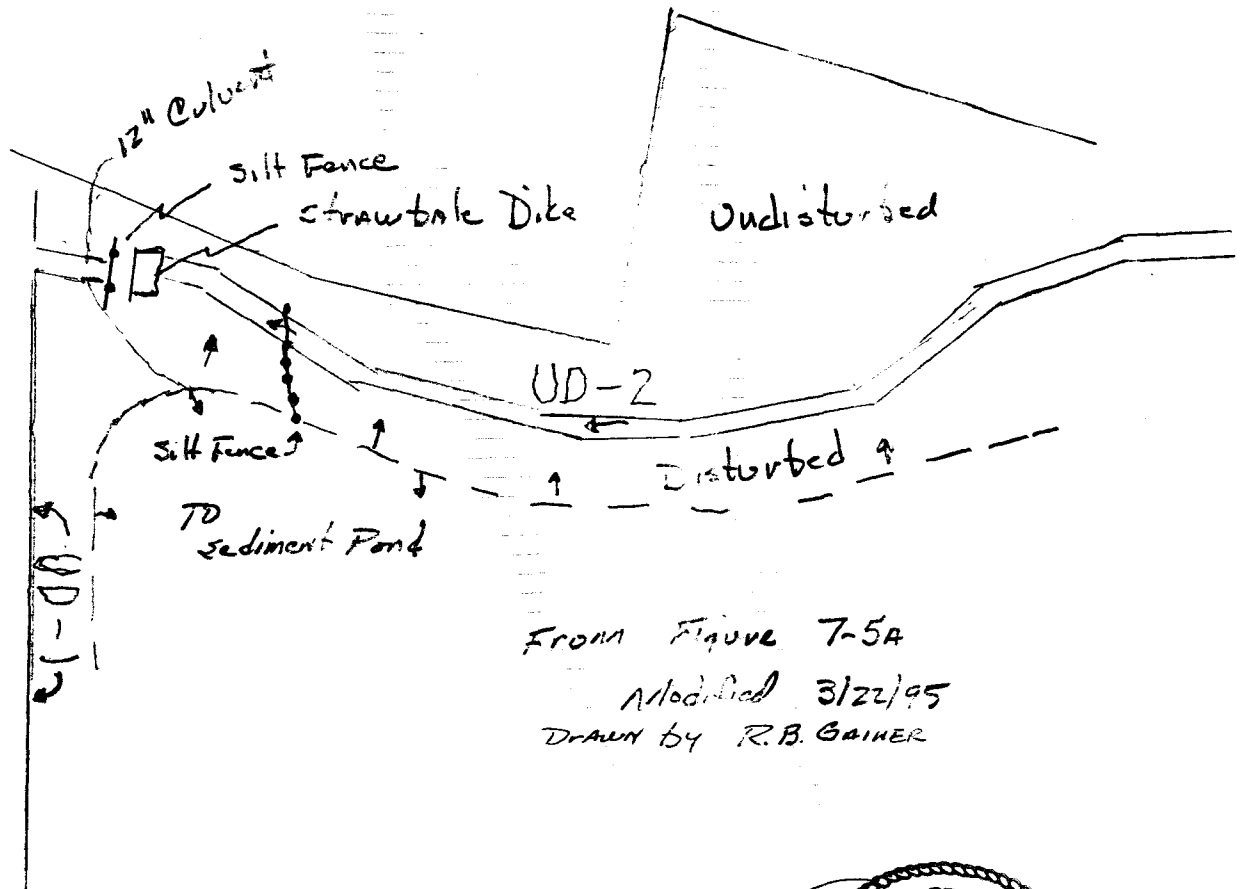 12" Culvert
Silt Fence
Strawbale Dike
Undisturbed
UD-2
Silt Fence
Disturbed
TO
Sediment Pond
UD-1
From Figure 7-5A
Modified 3/22/95
Drawn by R.B. GAINER